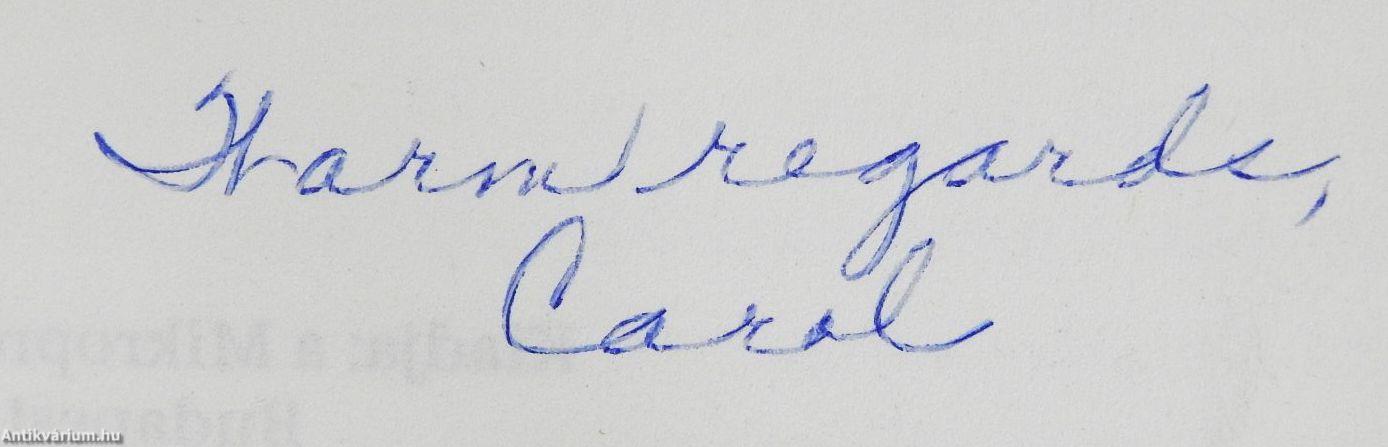 Warm regards,
Carol
Antikvárium.hu